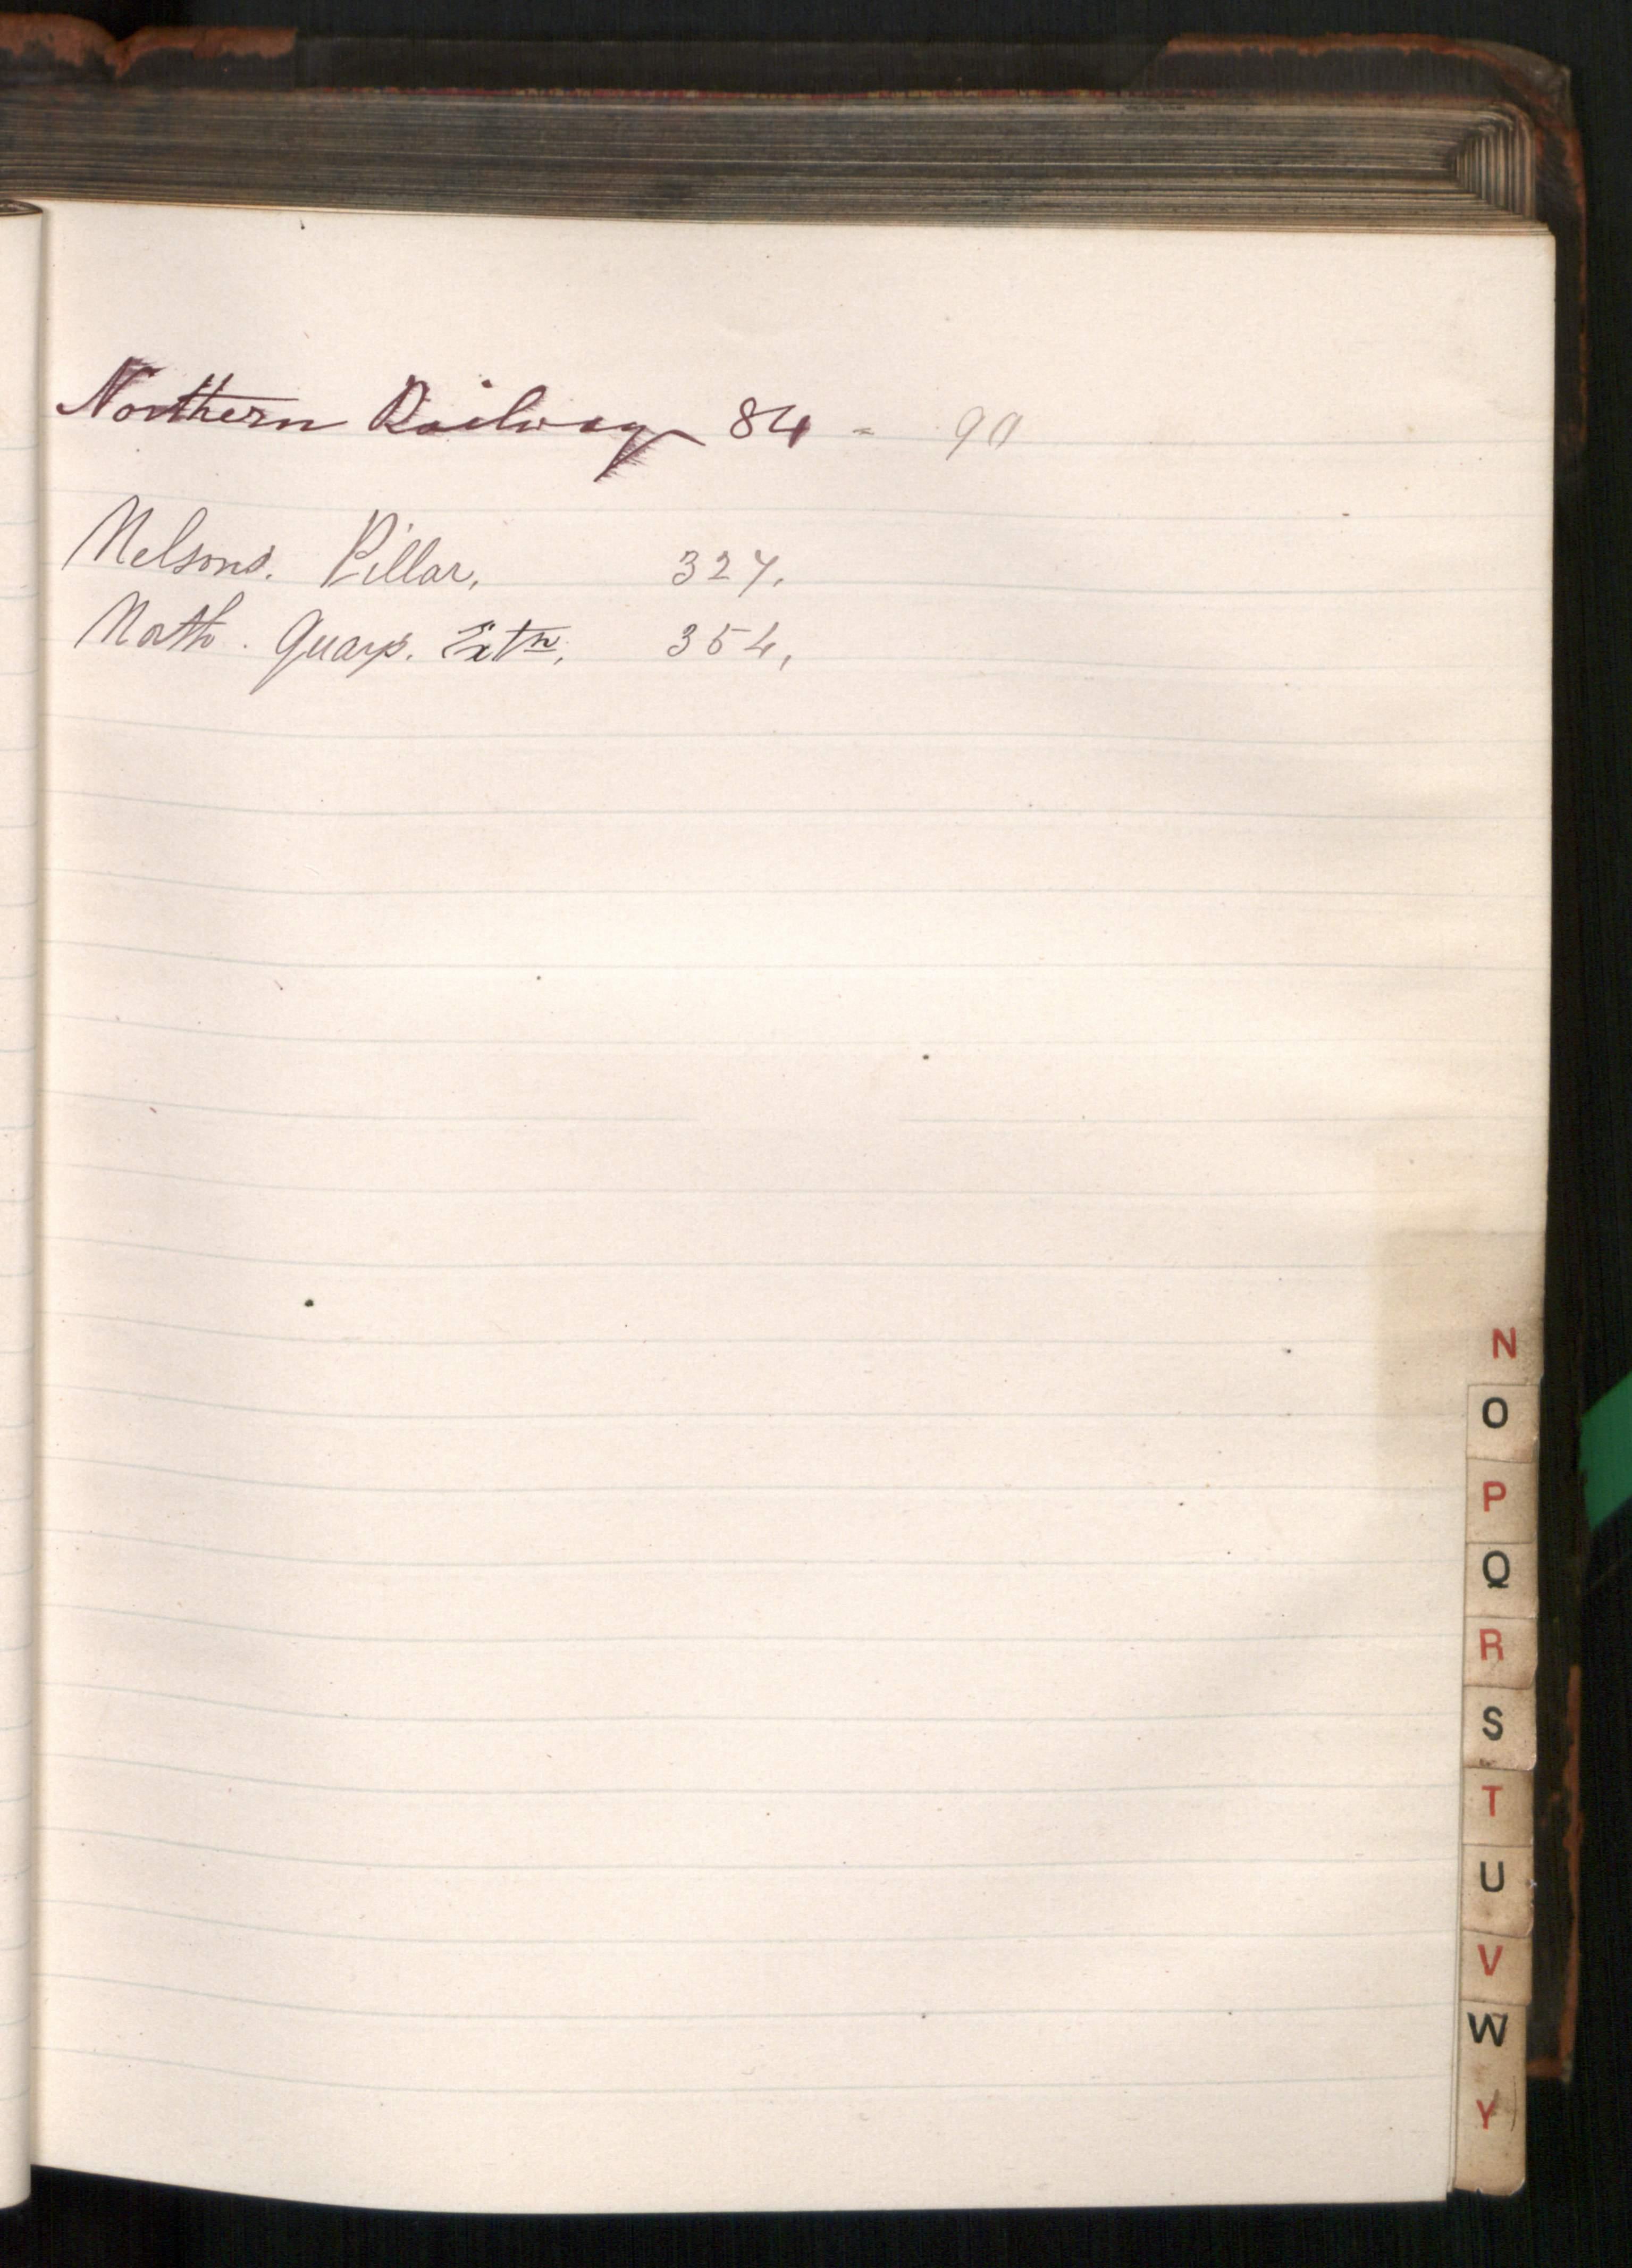 Northern Railway 84 - 90
Nelsons. Pillar, 327.
North. Quays. Extn. 354,
N
O
P
Q
R
S
T
U
V
W
Y